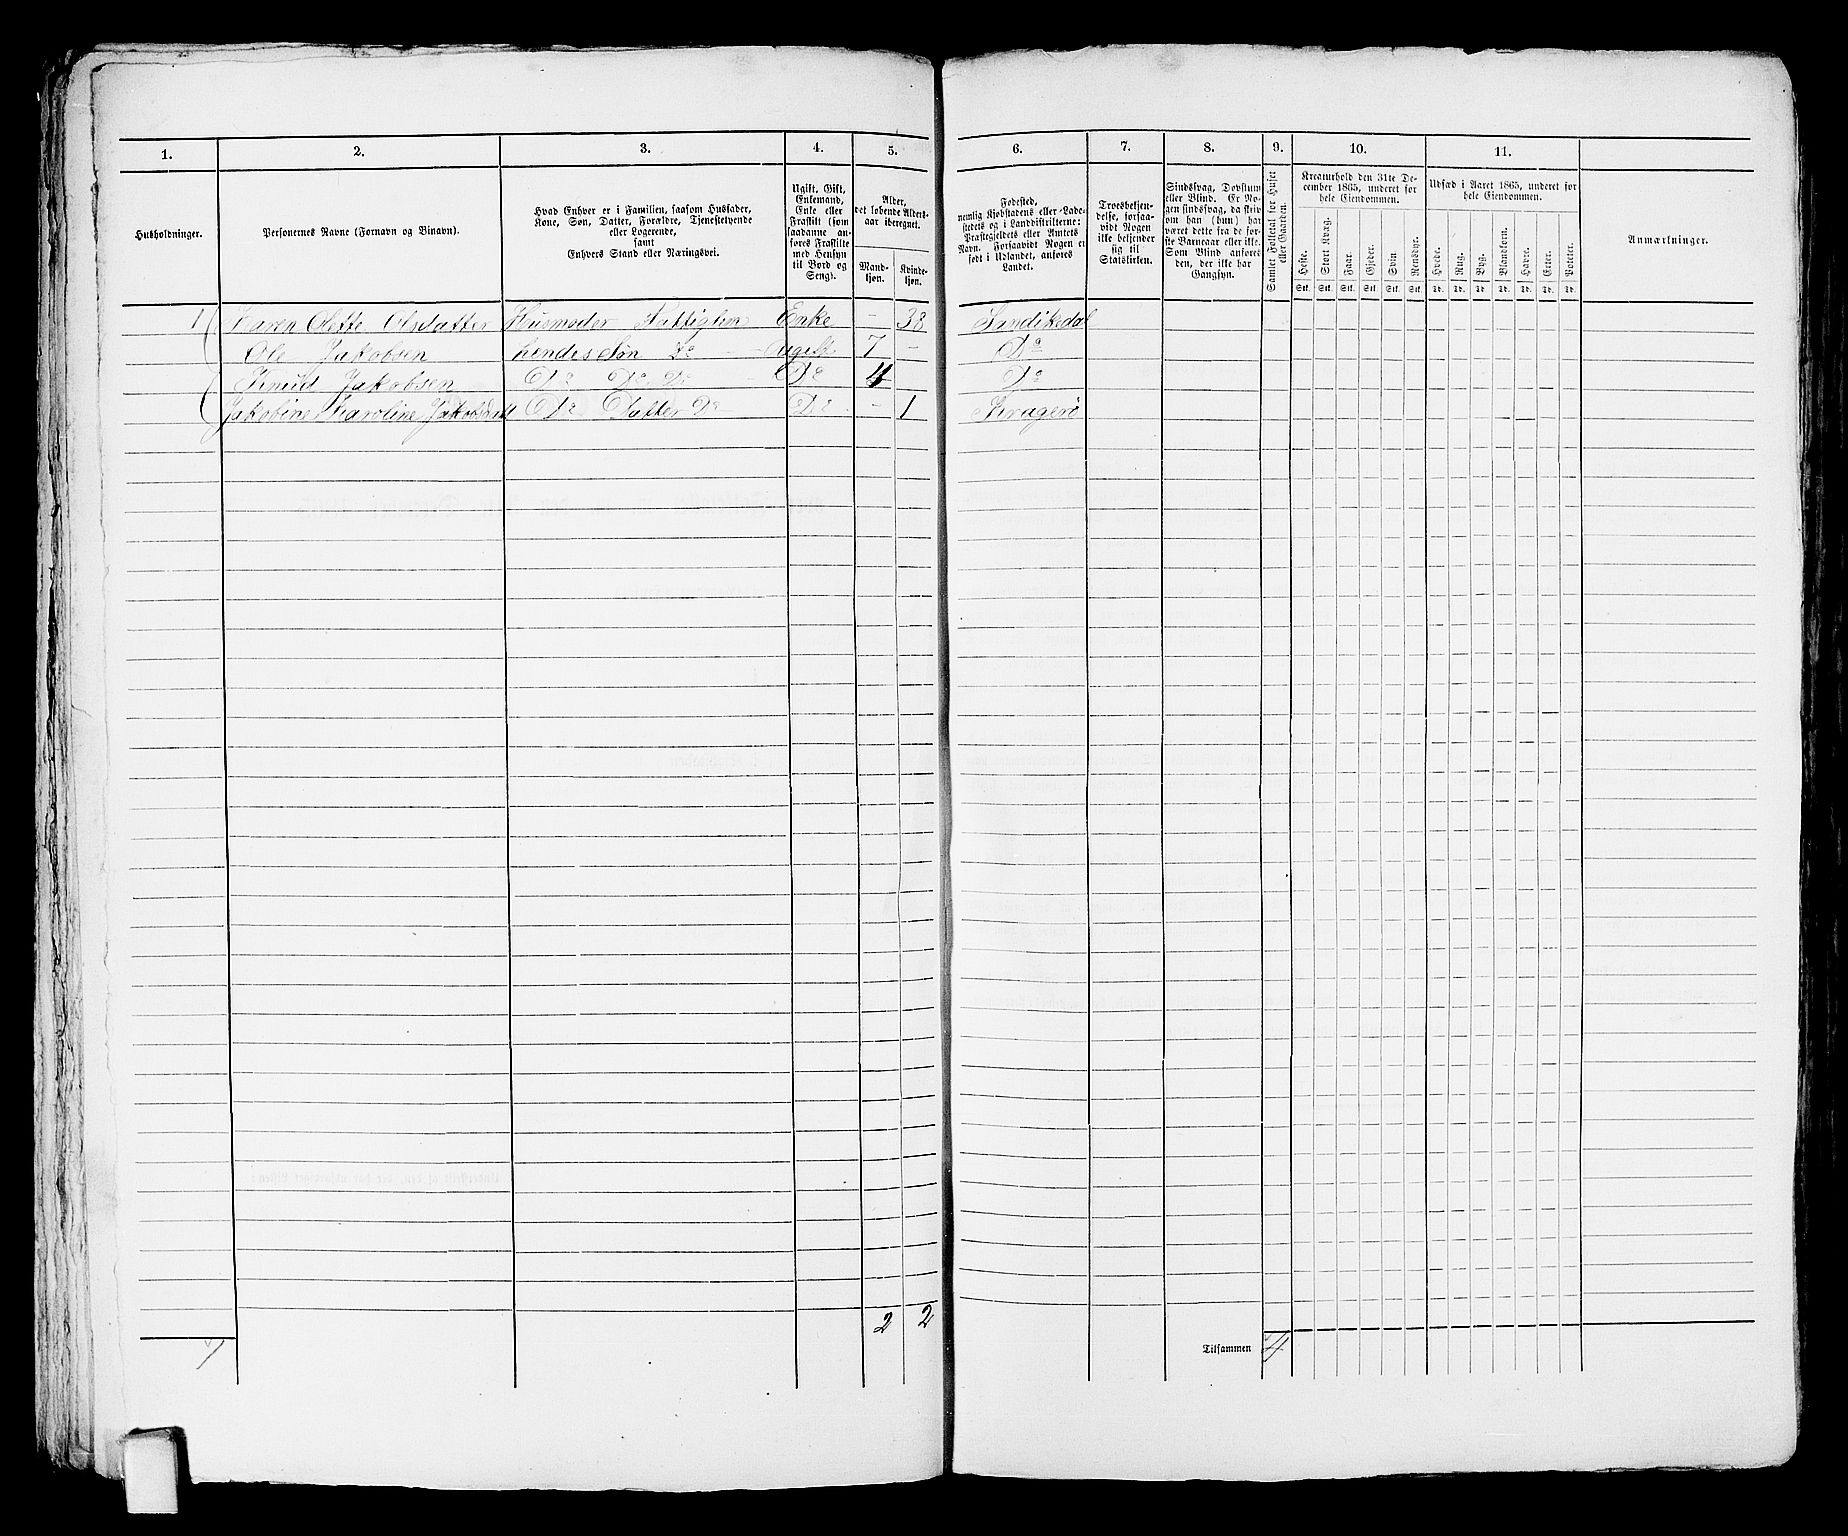 1. 2. 3. 4. 5. 6. 7. 8. 9. 10. 11.
Husholdninger.
Personernes Navne (Fornavn og Binavn).
Hvad Enhver er i Familien, saasom Husfader,
Kone, Søn, Datter, Forældre, Tjenestetyende
eller Logerende,
samt
Enhvers Stand eller Næringsvei.
Ugift, Gift,
Enkemand,
Enke eller
Fraskilt (som
saadanne an-
føres Fraskilte
med Hensyn
til Bord og
Seng).
Alder,
det løbende Alders-
aar iberegnet.
Mand-
kjøn.
Kvinde-
kjøn.
Fødested,
nemlig Kjøbstadens eller Lade-
stedets og i Landdistrikterne:
Præstegjeldets eller Amtets
Navn. Forsaavidt Nogen er
født i Udlandet, anføres
Landet.
Troesbekjen-
delse, forsaa-
vidt Nogen
ikke bekjender
sig til
Statskirken.
Sindssvag, Døvstum
eller Blind. Er No-
gen sindssvag, da skriv
om han (hun) har
været dette fra de før-
ste Barneaar eller ikke.
Som Blind anføres
den, der ikke har
Gangsyn.
Samlet Folketal for Huset
eller Gaarden.
Kreaturhold den 31te De-
cember 1865, underet for
hele Eiendommen.
Heste. Stort Kvæg. Faar. Gjeder. Svin. Rensdyr.
Stk. Stk. Stk. Stk. Stk. Stk.
Udsæd i Aaret 1865, underet for
hele Eiendommen.
Hvede. Rug. Byg. Blandkorn. Havre. Erter. Poteter.
Td. Td. Td. Td. Td. Td. Td.
Anmærkninger.
1 Karen Olette Olsdatter Husmoder Fattiglem Enke – 38 Sandikedal
Ole Jakobsen hendes Søn Do Ugift 7 – Do
Knud Jakobsen Do Do Do Do 4 Do
Jakobine Karoline Jakobsdatt Do Datter Do Do – 1 Kragerö
2 2
1 Tilsammen 4